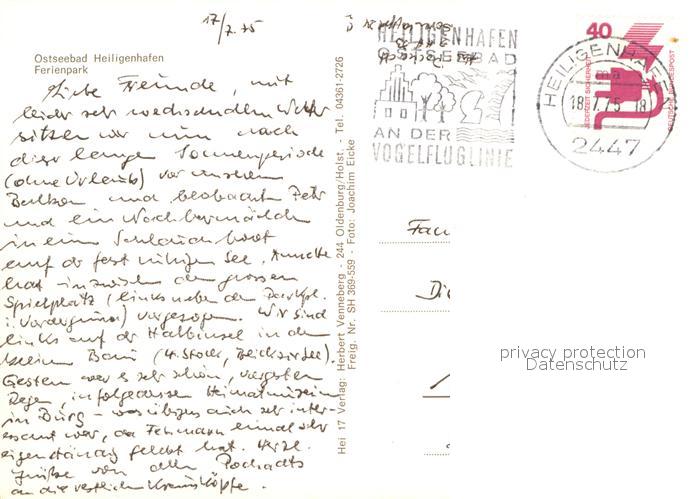 17/7.75
Ostseebad Heiligenhafen
Ferienpark
Liebe Freunde, mit
leider sehr wechselndem Wetter
sitzen wir nun nach
der langen Sonnenperiode
(ohne Urlaub) vor unserem
Balkon und beobachten Peter
und ein Nachbarmädchen
in einem Schlauchboot
auf der fast ruhigen See.
hat inzwischen den grossen
Spielplatz (links neben dem Parkpl.
i. Vordergrund) vorgezogen. Wir sind
links auf der Halbinsel in dem
kleinen Bau (4. Stock, Blick zur See).
Gestern war es sehr schön, vorgestern
Regen, infolgedessen Heimatmuseum
in Burg - was übrigens auch sehr inter-
essant war, da Fehmarn einmal sehr
eigenständig gelebt hat. Herzl.
Grüße von allen
an die restlichen
Hei 17 Verlag: Herbert Venneberg - 244 Oldenburg/Holst. - Tel. 04361-2726
Freig. Nr. SH 369-559 - Foto: Joachim Eicke
HEILIGENHAFEN
OSTSEEBAD
AN DER
VOGELFLUGLINIE
HEILIGENHAFEN
18.7.75-18
2447
40
JEDERZEIT SICHERHEIT
DEUTSCHE BUNDESPOST
Fam
Di
privacy protection
Datenschutz